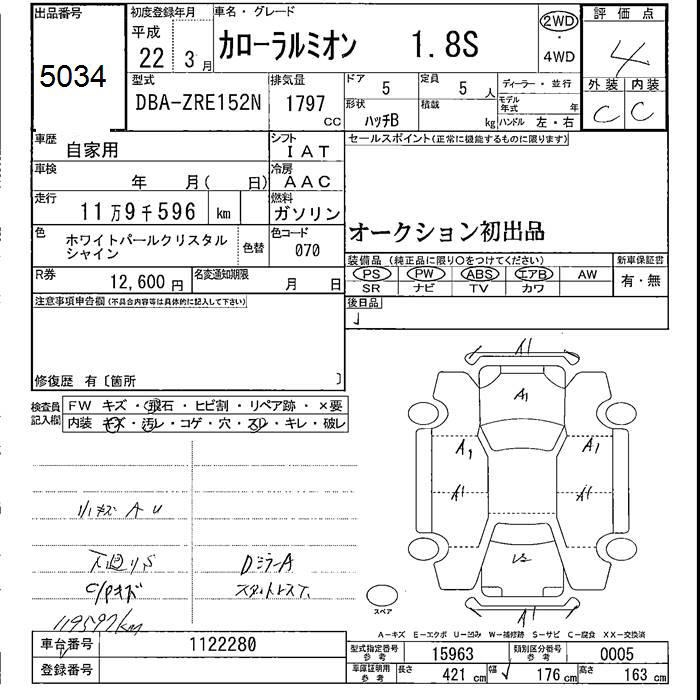 出品番号
5034
初度登録年月
平成
22 3月
車名・グレード
カローラルミオン 1.8S
2WD
・
4WD
評価点
4
外装 内装
C C
型式
DBA-ZRE152N
排気量
1797
CC
ドア
5
定員
5 人
形状
ハッチB
積載
kg
ディーラー・並行
モデル年式 年
ハンドル 左・右
車歴
自家用
シフト
IAT
車検
年 月( 日)
冷房
AAC
走行
11万9千596 km
燃料
ガソリン
色
ホワイトパールクリスタル
シャイン
色替
色コード
070
R券
12,600円
名変通知期限
月 日
セールスポイント(正常に機能するものに限ります)
オークション初出品
装備品(純正品に限り○をつけてください)
PS PW ABS エアB AW
SR ナビ TV カワ
新車保証書
有・無
後日品
注意事項申告欄(不具合内容等は具体的に記入して下さい)
修復歴 有〔箇所 〕
検査員
記入欄
FW キズ・飛石・ヒビ割・リペア跡・×要
内装 キズ・汚レ・コゲ・穴・スレ・キレ・破レ
A U
下廻りS
Dミラー A
スタットレス
119597km
A1
A1
A1
A1
A1
A1
A1
スペア
A-キズ E-エクボ U-凹み W-補修跡 S-サビ C-腐食 XX-交換済
車台番号 1122280
登録番号
型式指定番号
参考
15963
類別区分番号
参考
0005
車庫証明用
参考
長さ 421 cm
幅 176 cm
高さ 163 cm